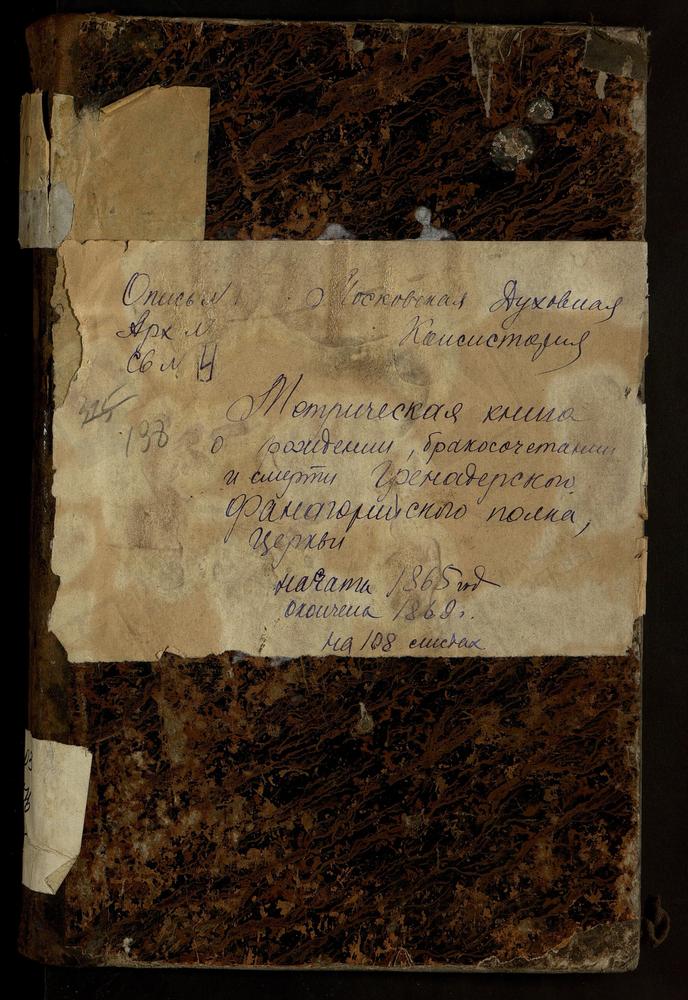 Опись №
Московская Духовная
Арх №
Консистория
Св № 4
325
198
Метрическая книга
о рождении, бракосочетании
и смерти Гренадерского
Фанагорийского полка,
Церкви
начата 1865 год
окончена 1869 г.
на 108 листах